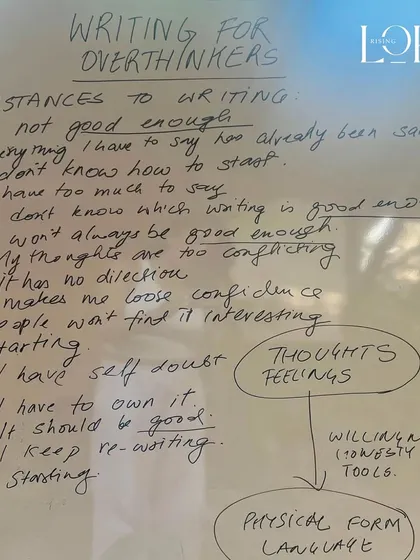 RISING
LOI
WRITING FOR
OVERTHINKERS
STANCES TO WRITING:
not good enough
erything I have to say has already been sa
don't know how to start.
have too much to say
don't know which writing is good eno
won't always be good enough.
My thoughts are too conflicting
it has no direction
makes me loose confidence
eople won't find it interesting
tarting.
I have self doubt
I have to own it.
It should be good.
I keep re-writing.
Starting.
THOUGHTS
FEELINGS
WILLINGN
HONESTY
TOOLS.
PHYSICAL FORM
LANGUAGE